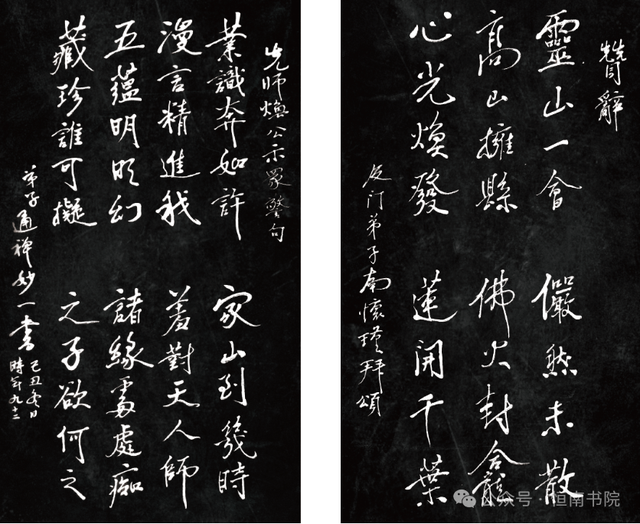 贊辭
靈山一會 儼然未散
高山擁縣 佛火封龕
心光煥發 蓮開千葉
及门弟子南懷瑾拜頌
先師煥公示眾警句
業識奔如許 家山到幾時
漫言精進我 羞對天人師
五蘊明明幻 諸緣處處痴
藏珍誰可擬 之子欲何之
弟子通禪妙一書
己丑冬日
時年九十三
公众号·恒南书院